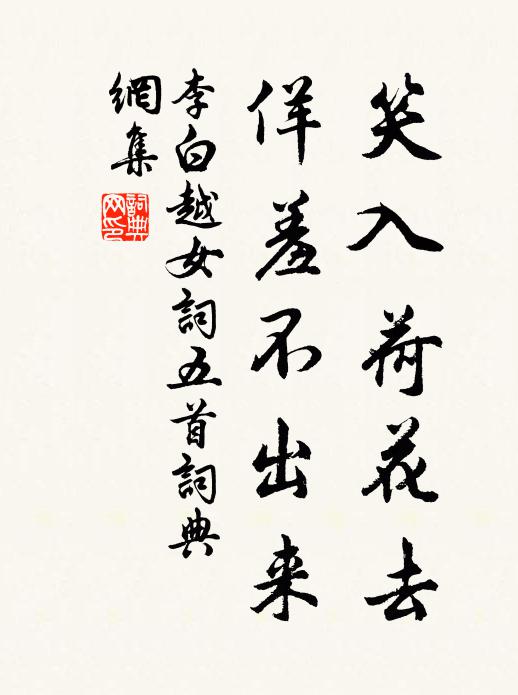 笑入荷花去
佯羞不出来
李白越女詞五首詞典
網集
詞典
网印